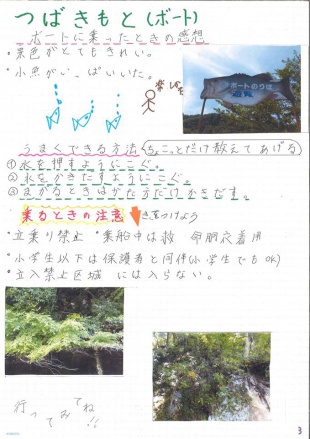 つばきもと(ボート)
ボートに乗ったときの感想
・景色がとてもきれい。
・小魚がいっぱいいた。
楽しいな
ボートのりば
遊覧
うまくできる方法(ちょこっとだけ教えてあげる)
①水を押すようにこぐ。
②水をかきだすようにこぐ。
③まがるときはかた方だけかきだす。
乗るときの注意 気をつけよう
・立乗り禁止 ・乗船中は救命胴衣着用
・小学生以下は保護者と同伴(小学生でもOK)
・立入禁止区域には入らない。
行ってみてね!!
3